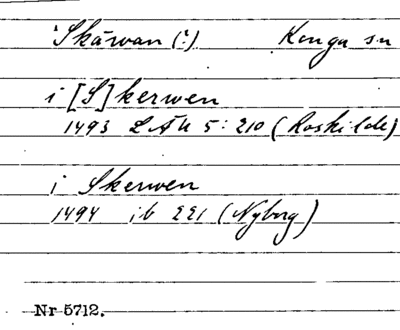 'Skärvan (?) Kinga sn
i [S]kerwen
1493 LÄU 5: 210 (Roskilde)
i Skerwen
1494 ib 221 (Nyborg)
Nr 5712.